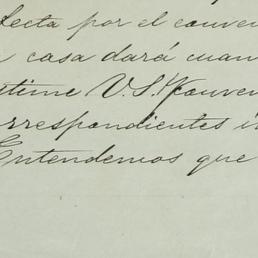 fecta por el conven
casa dará cuan
stime V.S. conven
orrespondientes i
Entendemos que